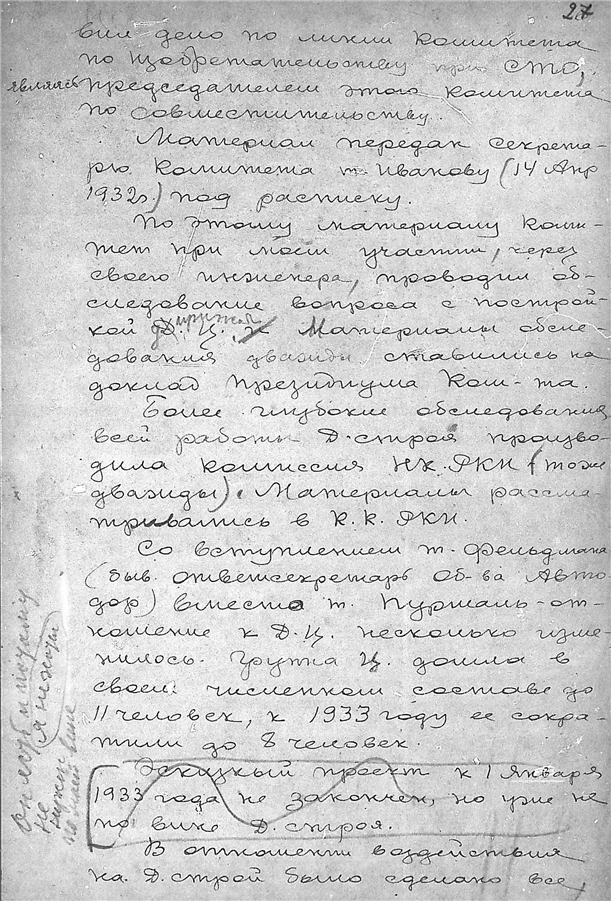 27
вил дело по линии Комитета
по изобретательству при СТО,
являясь председателем этого комитета
по совместительству.
Материал передан секрета-
рю Комитета т. Иванову (14 Апр
1932г.) под расписку.
По этому материалу Коми-
тет при моем участии, через
своего инженера, проводил об-
следование вопроса с построй-
кой дирижаб. Ц. Материалы обсле-
дования дважды ставились на
доклад Президиума Ком-та.
Более глубокие обследования
всей работы Д.строя произво-
дила комиссия НК.РКИ (тоже
дважды). Материалы рассма-
тривались в К.К. РКИ.
Со вступлением т. Фельдмана
(быв. ответсекретарь Об-ва Авто
дор) вместо т. Пурмаль - от-
ношение к Д.Ц. несколько изме-
нилось. Группа Ц. дошла в
своем численном составе до
11 человек, к 1933 году ее сокра-
тили до 8 человек.
Эскизный проект к 1 января
1933 года не закончен, но уже не
по вине Д.строя.
В отношении воздействия
на Д.строй было сделано все,
я не
не